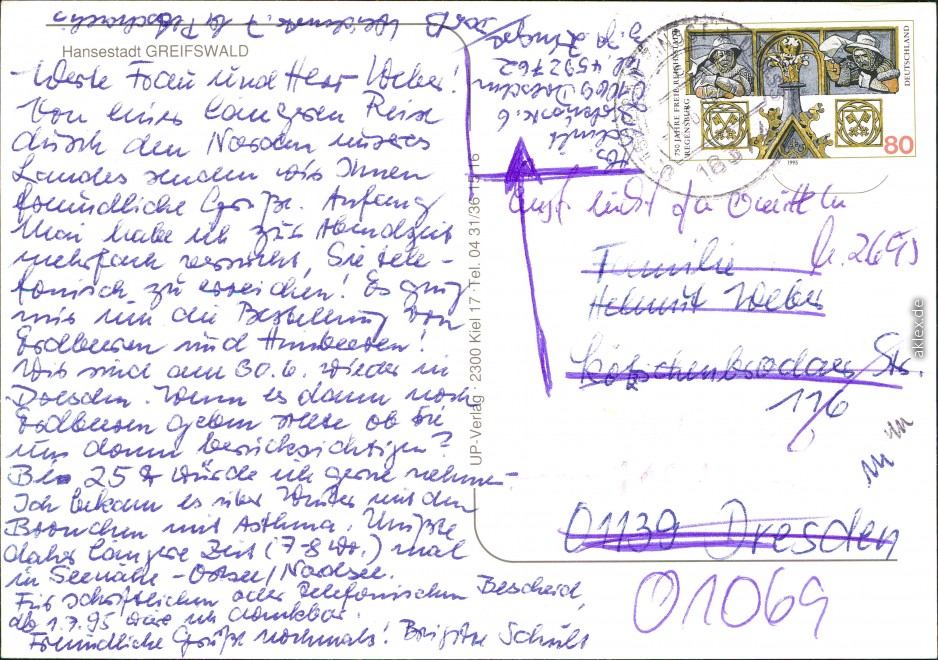 Hansestadt GREIFSWALD
- Werte Frau und Herr Weber!
Von einer längeren Reise
durch den Norden unseres
Landes senden wir Ihnen
freundliche Grüße. Anfang
Mai habe ich zur Abendzeit
mehrfach versucht, Sie tele-
fonisch zu erreichen! Es ging
mir um die Bestellung von
Erdbeeren und Himbeeren!
Wir sind am 30.6. wieder in
Dresden. Wenn es dann noch
Erdbeeren geben sollte ob Sie
uns dann berücksichtigen?
Bis 25 würde ich gerne nehmen.
Ich bekam es über Winter mit den
Bronchien mit Asthma. Mußte
daher längere Zeit (7-8 Wo.) mal
in Seenähe - Ostsee/Nordsee.
Für schriftlichen oder telefonischen Bescheid,
ab 1.7.95 wäre ich dankbar.
Freundliche Grüße nochmals! Brigitte Schulz
UP-Verlag · 2300 Kiel 17 · Tel. 04 31/36 15 16
Tel. 4592762
750 JAHRE FREIE REICHSSTADT
REGENSBURG
DEUTSCHLAND
80
1995
h. 2695
Familie
Helmut Weber
Kötzschenbrodaer Str.
116
01139 Dresden
01069
aklex.de